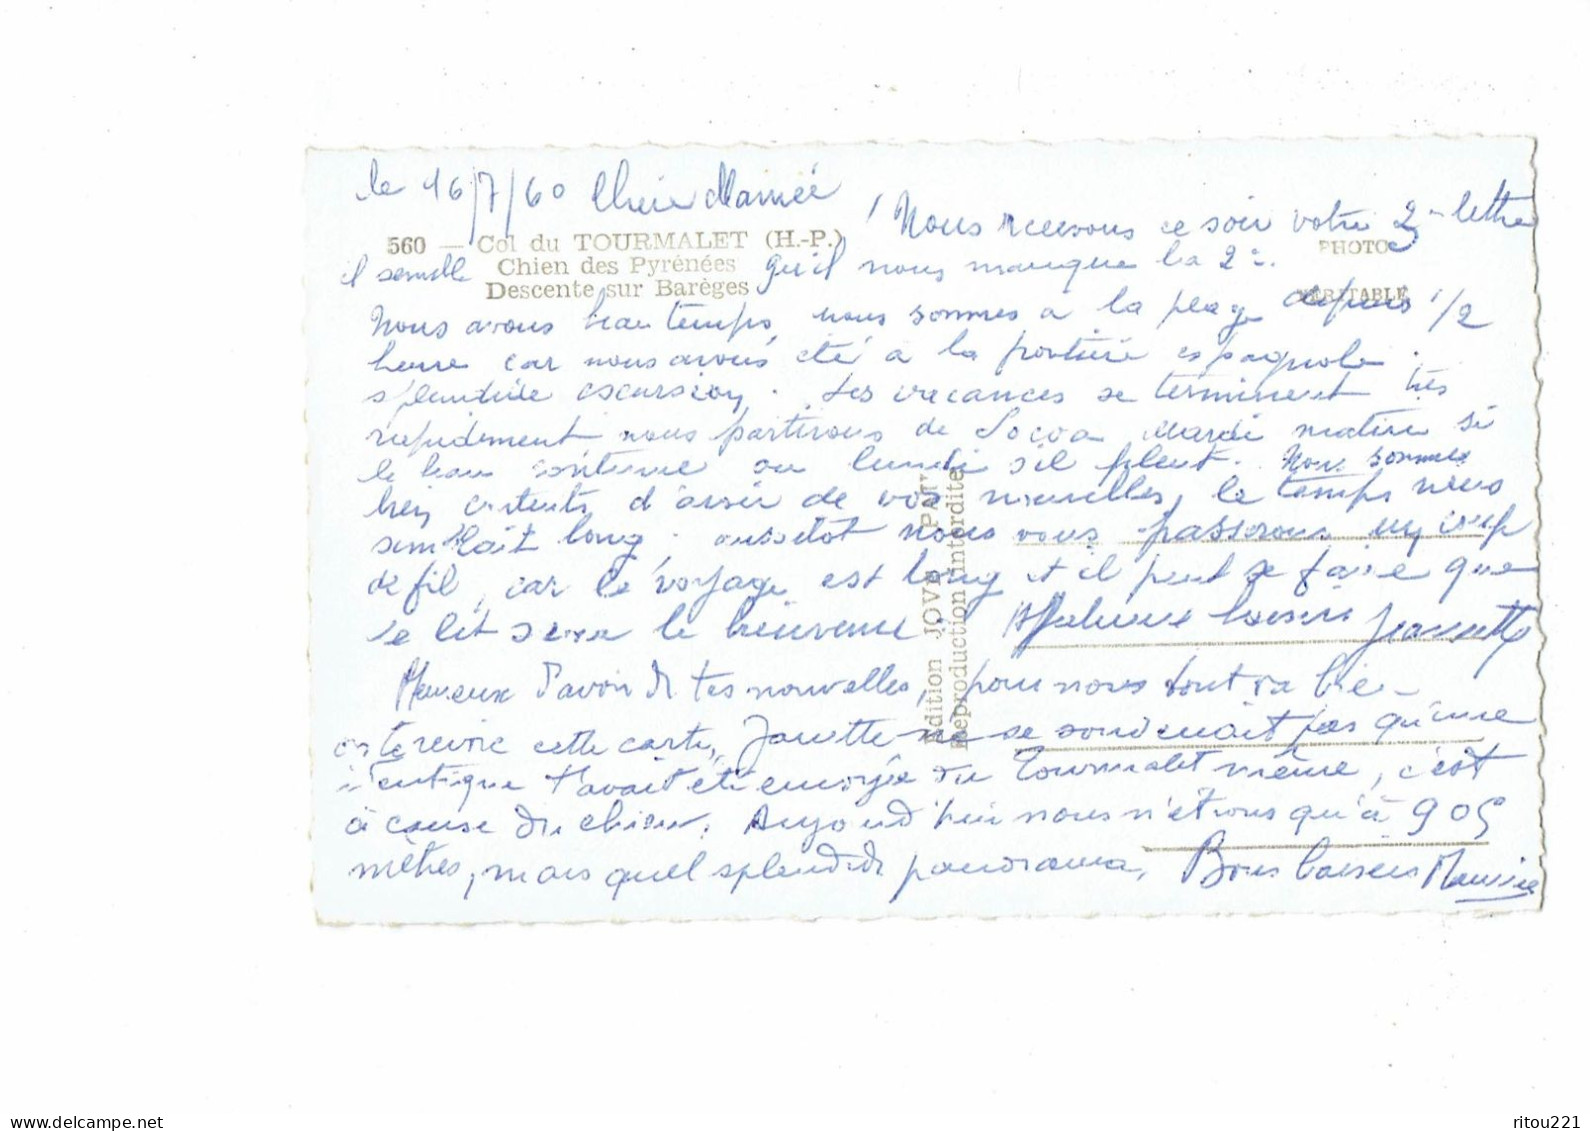 le 16/7/60 Chère Mamée
! Nous recevons ce soir votre 3me lettre
560 — Col du TOURMALET (H.-P.)
Chien des Pyrénées
Descente sur Barèges
PHOTO
VÉRITABLE
il semble qu'il nous manque la 2e.
Nous avons beau temps, nous sommes à la plage depuis 1/2
heure car nous avons été à la frontière espagnole
splendide escursion. Les vacances se terminent très
rapidement nous partirons de Socoa Mardi matin si
le beau continue ou lundi s'il pleut. Nous sommes
bien contents d'avoir de vos nouvelles, le temps nous
semblait long. aussitot nous vous passerons un coup
de fil, car le voyage est long et il peut se faire que
le lit sera le bienvenu. Affectueux baisers Jeannette
Heureux d'avoir de tes nouvelles, pour nous tout va bien
cette carte, Janette ne se souvenait pas qu'une
identique t'avait été envoyée du Tourmalet même, c'est
à cause du chien. Aujourd'hui nous n'étions qu'à 905
mètres, mais quel splendide panorama. Bons baisers Maurice
Edition JOVE PAU
Reproduction interdite
delcampe.net
ritou221